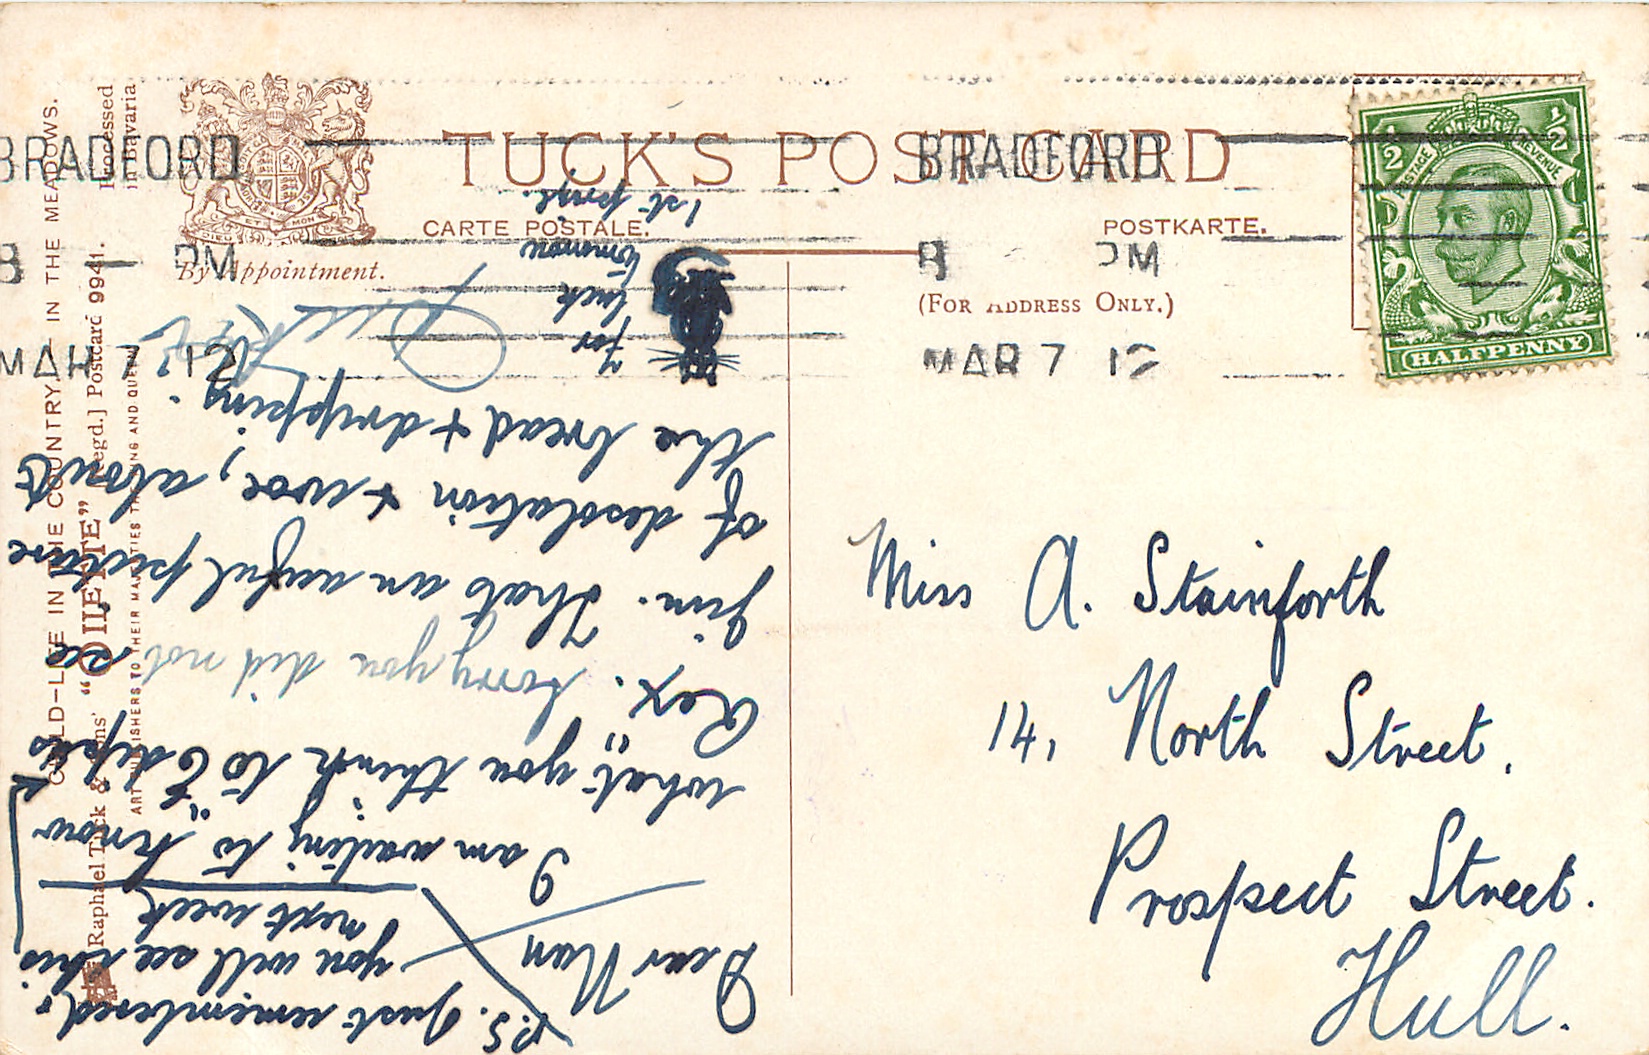 TUCK'S POST CARD
CARTE POSTALE.
POSTKARTE.
By Appointment.
(FOR ADDRESS ONLY.)
BRADFORD
8 — PM
MAR 7 12
BRADFORD
8 PM
MAR 7 12
POSTAGE REVENUE
½ ½
HALFPENNY
Miss A. Stainforth
14, North Street,
Prospect Street.
Hull.
P.S. Just remembered,
you will see this
next week
Dear Nan
I am waiting to know
what you think to "Œdipus
Rex." Sorry you did not see
Jim. Thats an awful picture
of desolation & woe, about
the bread & dripping.
for
luck
tomorrow
1st prize.
CHILD-LIFE IN THE COUNTRY, IN THE MEADOWS.
Raphael Tuck & Sons' "OILETTE" [Regd.] Postcard 9941.
ART PUBLISHERS TO THEIR MAJESTIES THE KING AND QUEEN.
Processed
in Bavaria